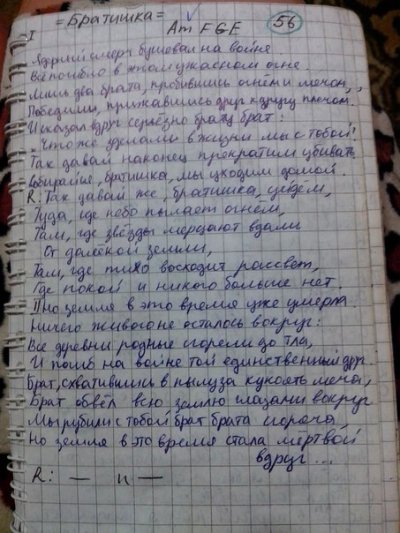 =Братишка=
Am F G E
56
I
Ядерный смерч бушевал на войне
Всё погибло в этом ужасном огне.
Лишь два брата, пробившись огнём и мечом,
Победили, прижавшись друг к другу плечом.
И сказал вдруг серьёзно брату брат:
"Что же сделали в жизни мы с тобой!
Так давай наконец прекратим убивать
Собирайся, братишка, мы уходим домой.
R: Так давай же, братишка, уйдём,
Туда, где небо пылает огнём,
Там, где звёзды мерцают вдали
От далёкой земли,
Там, где тихо восходит рассвет,
Где покой и никого больше нет.
II Но земля в это время уже умерла
Ничего живого не осталось вокруг:
Все деревни родные сгорели до тла,
И погиб на войне той единственный друг.
Брат, схватившись в пылу за рукоять меча,
Брат обвёл всю землю глазами вокруг
Мы рубили с тобой брат брата сгоряча,
Но земля в это время стала мёртвой
вдруг...
R: — и —